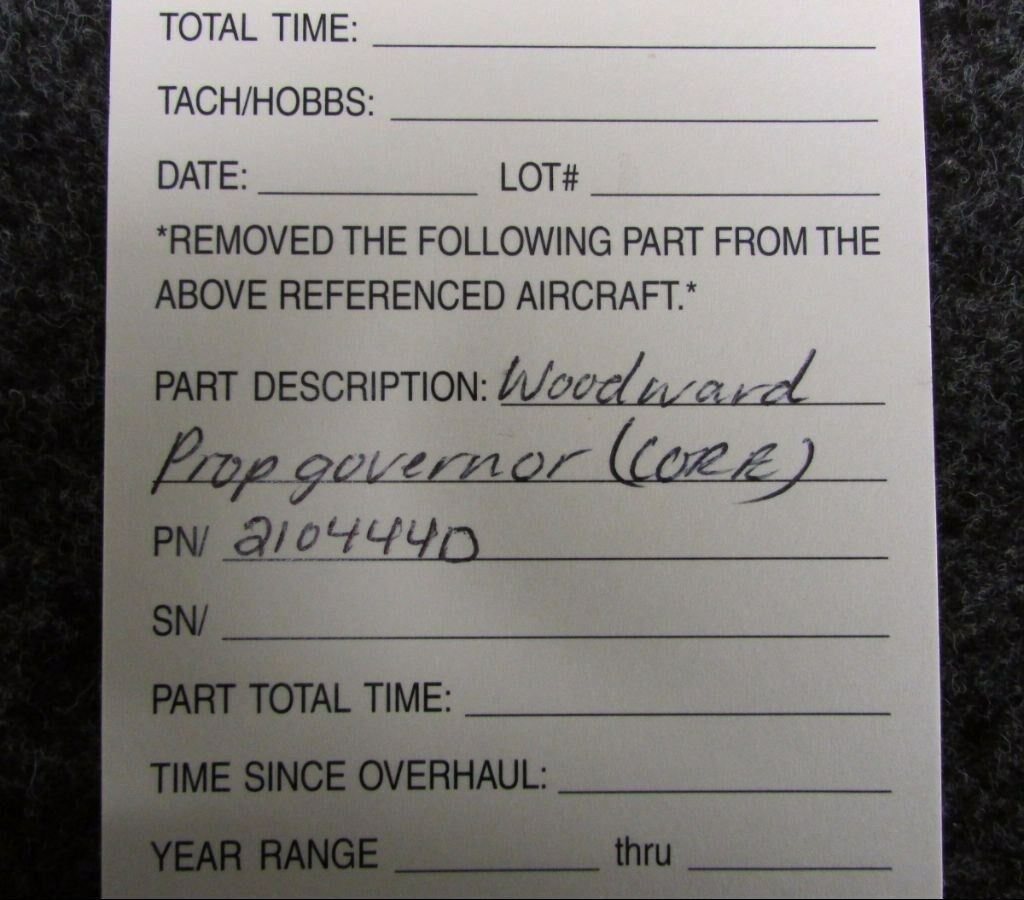 TOTAL TIME:
TACH/HOBBS:
DATE: LOT#
*REMOVED THE FOLLOWING PART FROM THE
ABOVE REFERENCED AIRCRAFT.*
PART DESCRIPTION: Woodward
Prop governor (CORE)
PN/ 210444D
SN/
PART TOTAL TIME:
TIME SINCE OVERHAUL:
YEAR RANGE thru